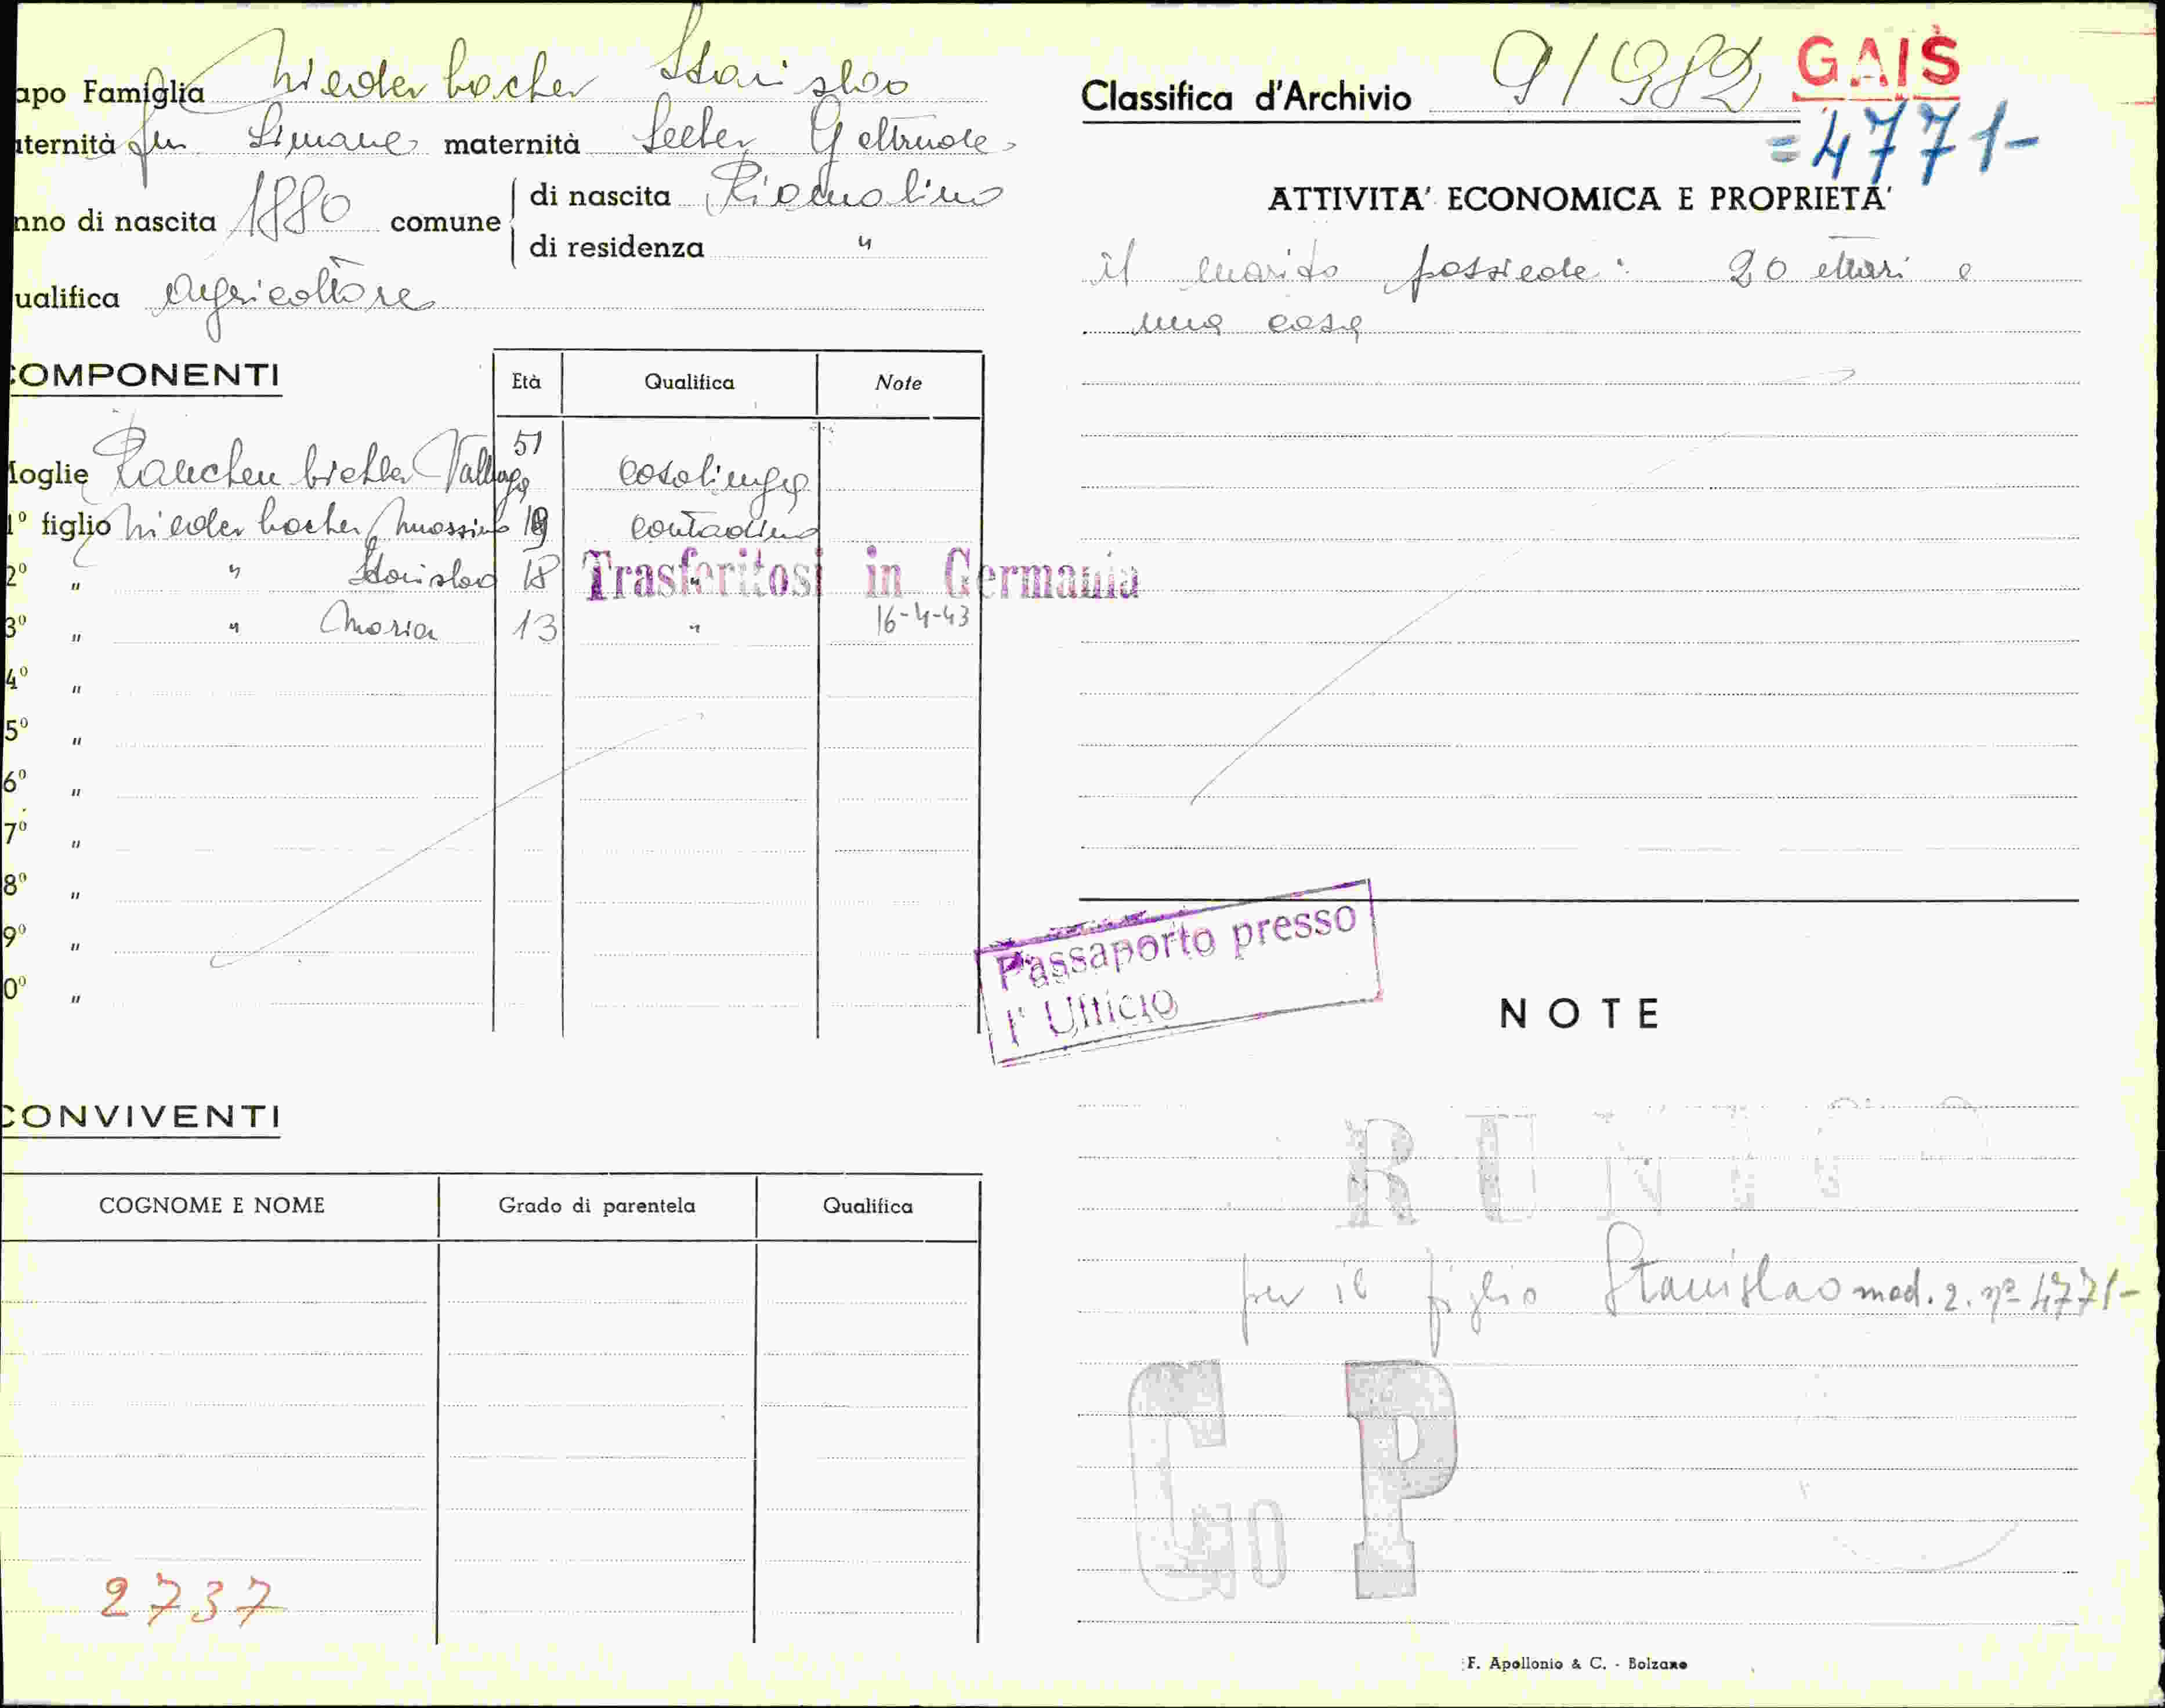 apo Famiglia Niederbacher Stanislao
aternità fu Simone maternità Seeber Geltrude
nno di nascita 1880 comune di nascita Riomolino
di residenza "
ualifica Agricoltore
COMPONENTI Età Qualifica Note
Moglie Valburga 51 casalinga
1º figlio Niederbacher Massimo 19 contadino
2º " " Stanislao 18 "
Trasferitosi in Germania
3º " " Maria 13 " 16-4-43
4º "
5º "
6º "
7º "
8º "
9º "
0º "
CONVIVENTI
COGNOME E NOME Grado di parentela Qualifica
2737
Classifica d'Archivio 9/982 GAIS
=4771-
ATTIVITA' ECONOMICA E PROPRIETA'
il marito possiede: 20 ettari e
una casa
Passaporto presso
l' Ufficio
NOTE
per il figlio Stanislao mod. 2. nº 4771-
P
F. Apollonio & C. - Bolzano